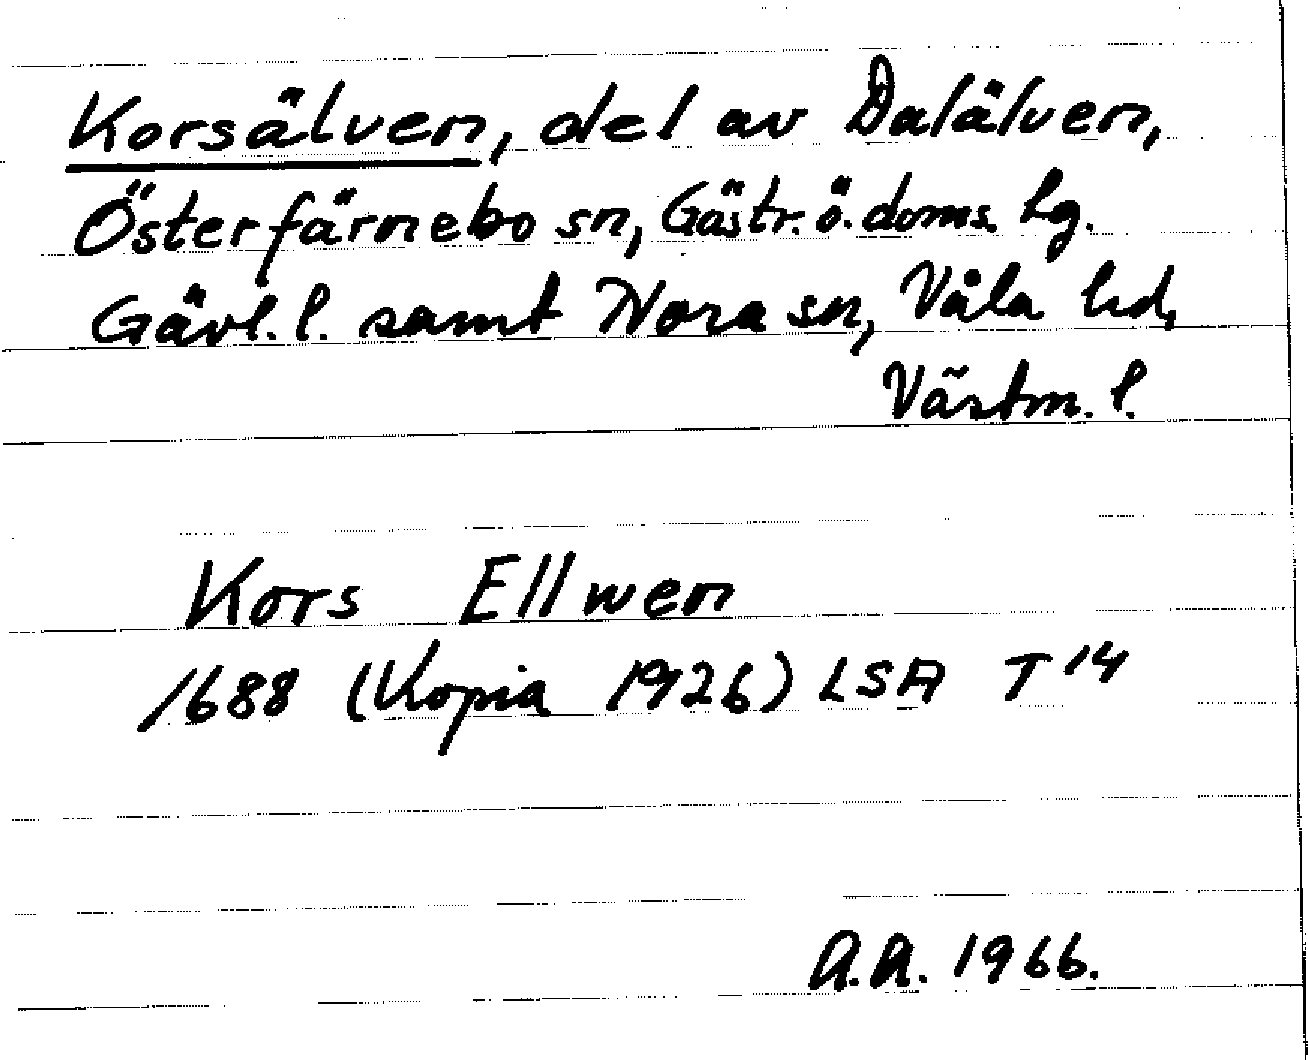 Korsälven, del av Dalälven,
Österfärnebo sn, Gästr. ö. doms. lg.
Gävl. l. samt Nora sn, Våla hd,
Västm. l.
Kors Ellwen
1688 (Kopia 1926) LSA T 14
A.A. 1966.